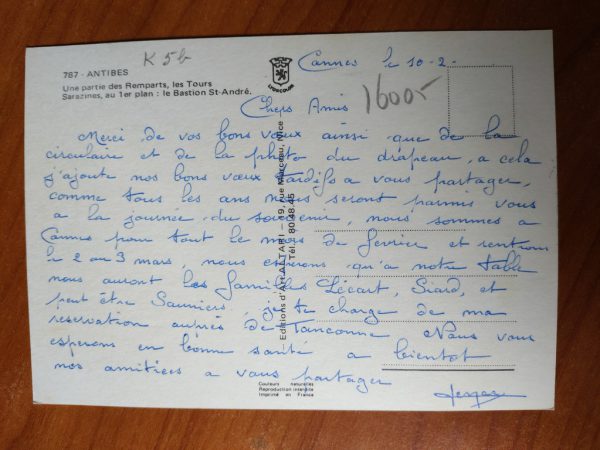 K 5b
787 - ANTIBES
Une partie des Remparts, les Tours
Sarazines, au 1er plan : le Bastion St-André.
Cannes le 10-2-
16005
Chers Amis
Merci de vos bons vœux ainsi que de la
circulaire et de la photo du drapeau, a cela
j'ajoute nos bons vœux tardifs a vous partager,
comme tous les ans nous seront parmis vous
a la journée du souvenir, nous sommes a
Cannes pour tout le mois de fevrier et rentrons
le 2 au 3 mars, nous esperons qu'a notre table
nous auront les familles Lécart, Siard, et
peut être Sauniers, je te charge de ma
reservation auprès de Tanconne Nous vous
esperons en bonne santé a bientot
nos amitiées a vous partager
Editions d'Art ALTARI - 49, rue Marceau, Nice
Tél. 80.48.45
Couleurs naturelles
Reproduction interdite
Imprimé en France